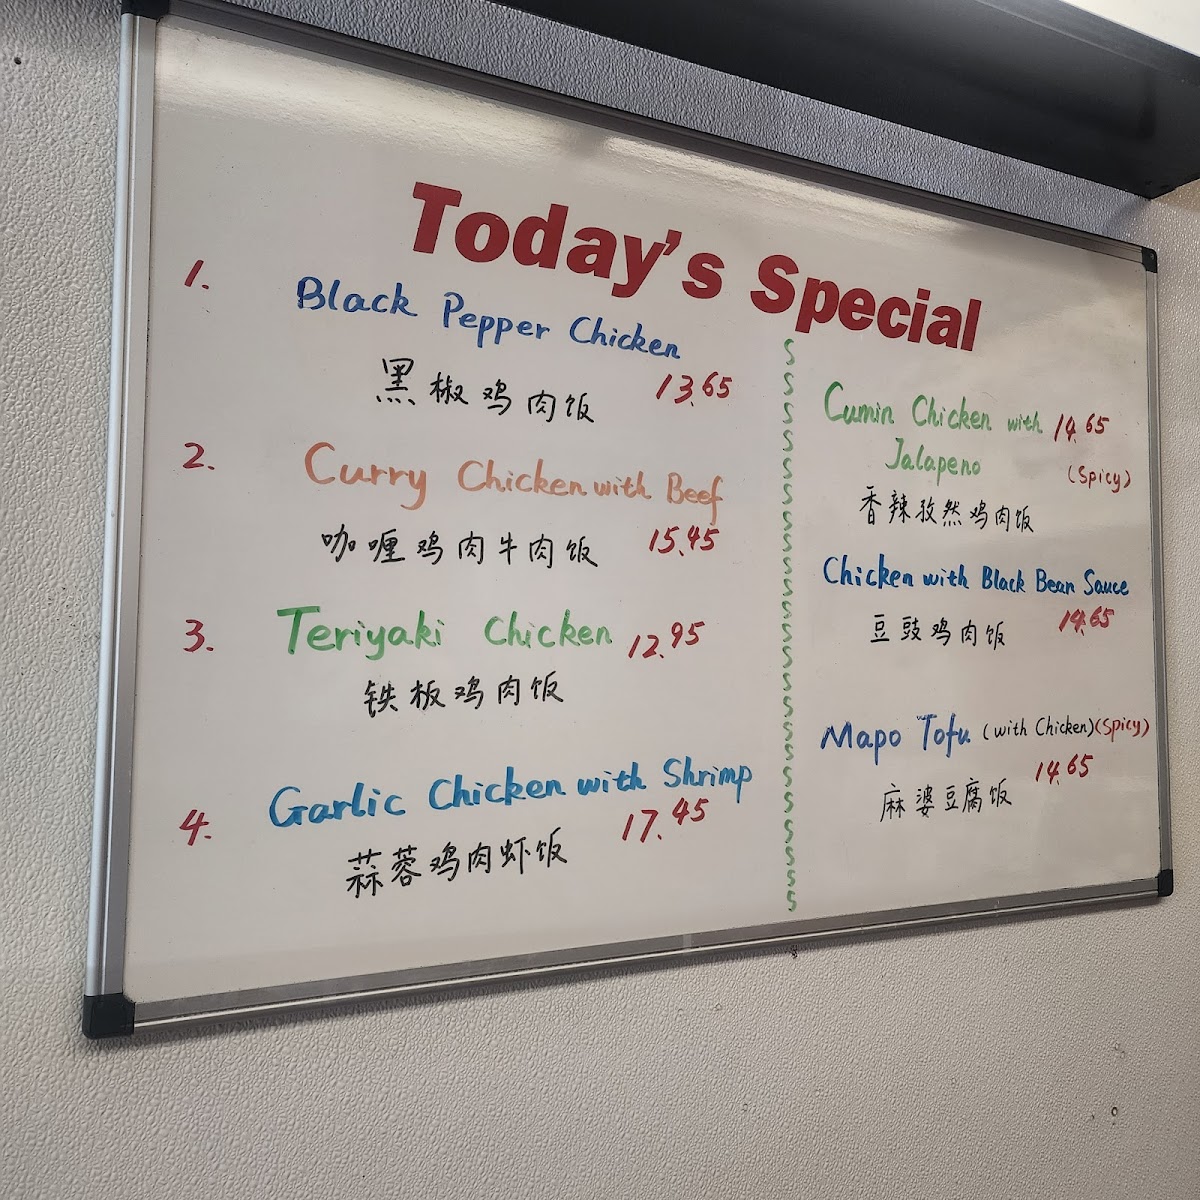 Today's Special
1. Black Pepper Chicken
黑椒鸡肉饭 13.65
2. Curry Chicken with Beef
咖喱鸡肉牛肉饭 15.45
3. Teriyaki Chicken 12.95
铁板鸡肉饭
4. Garlic Chicken with Shrimp
蒜蓉鸡肉虾饭 17.45
Cumin Chicken with 14.65
Jalapeno (Spicy)
香辣孜然鸡肉饭
Chicken with Black Bean Sauce
豆豉鸡肉饭 14.65
Mapo Tofu (with Chicken)(Spicy)
麻婆豆腐饭 14.65